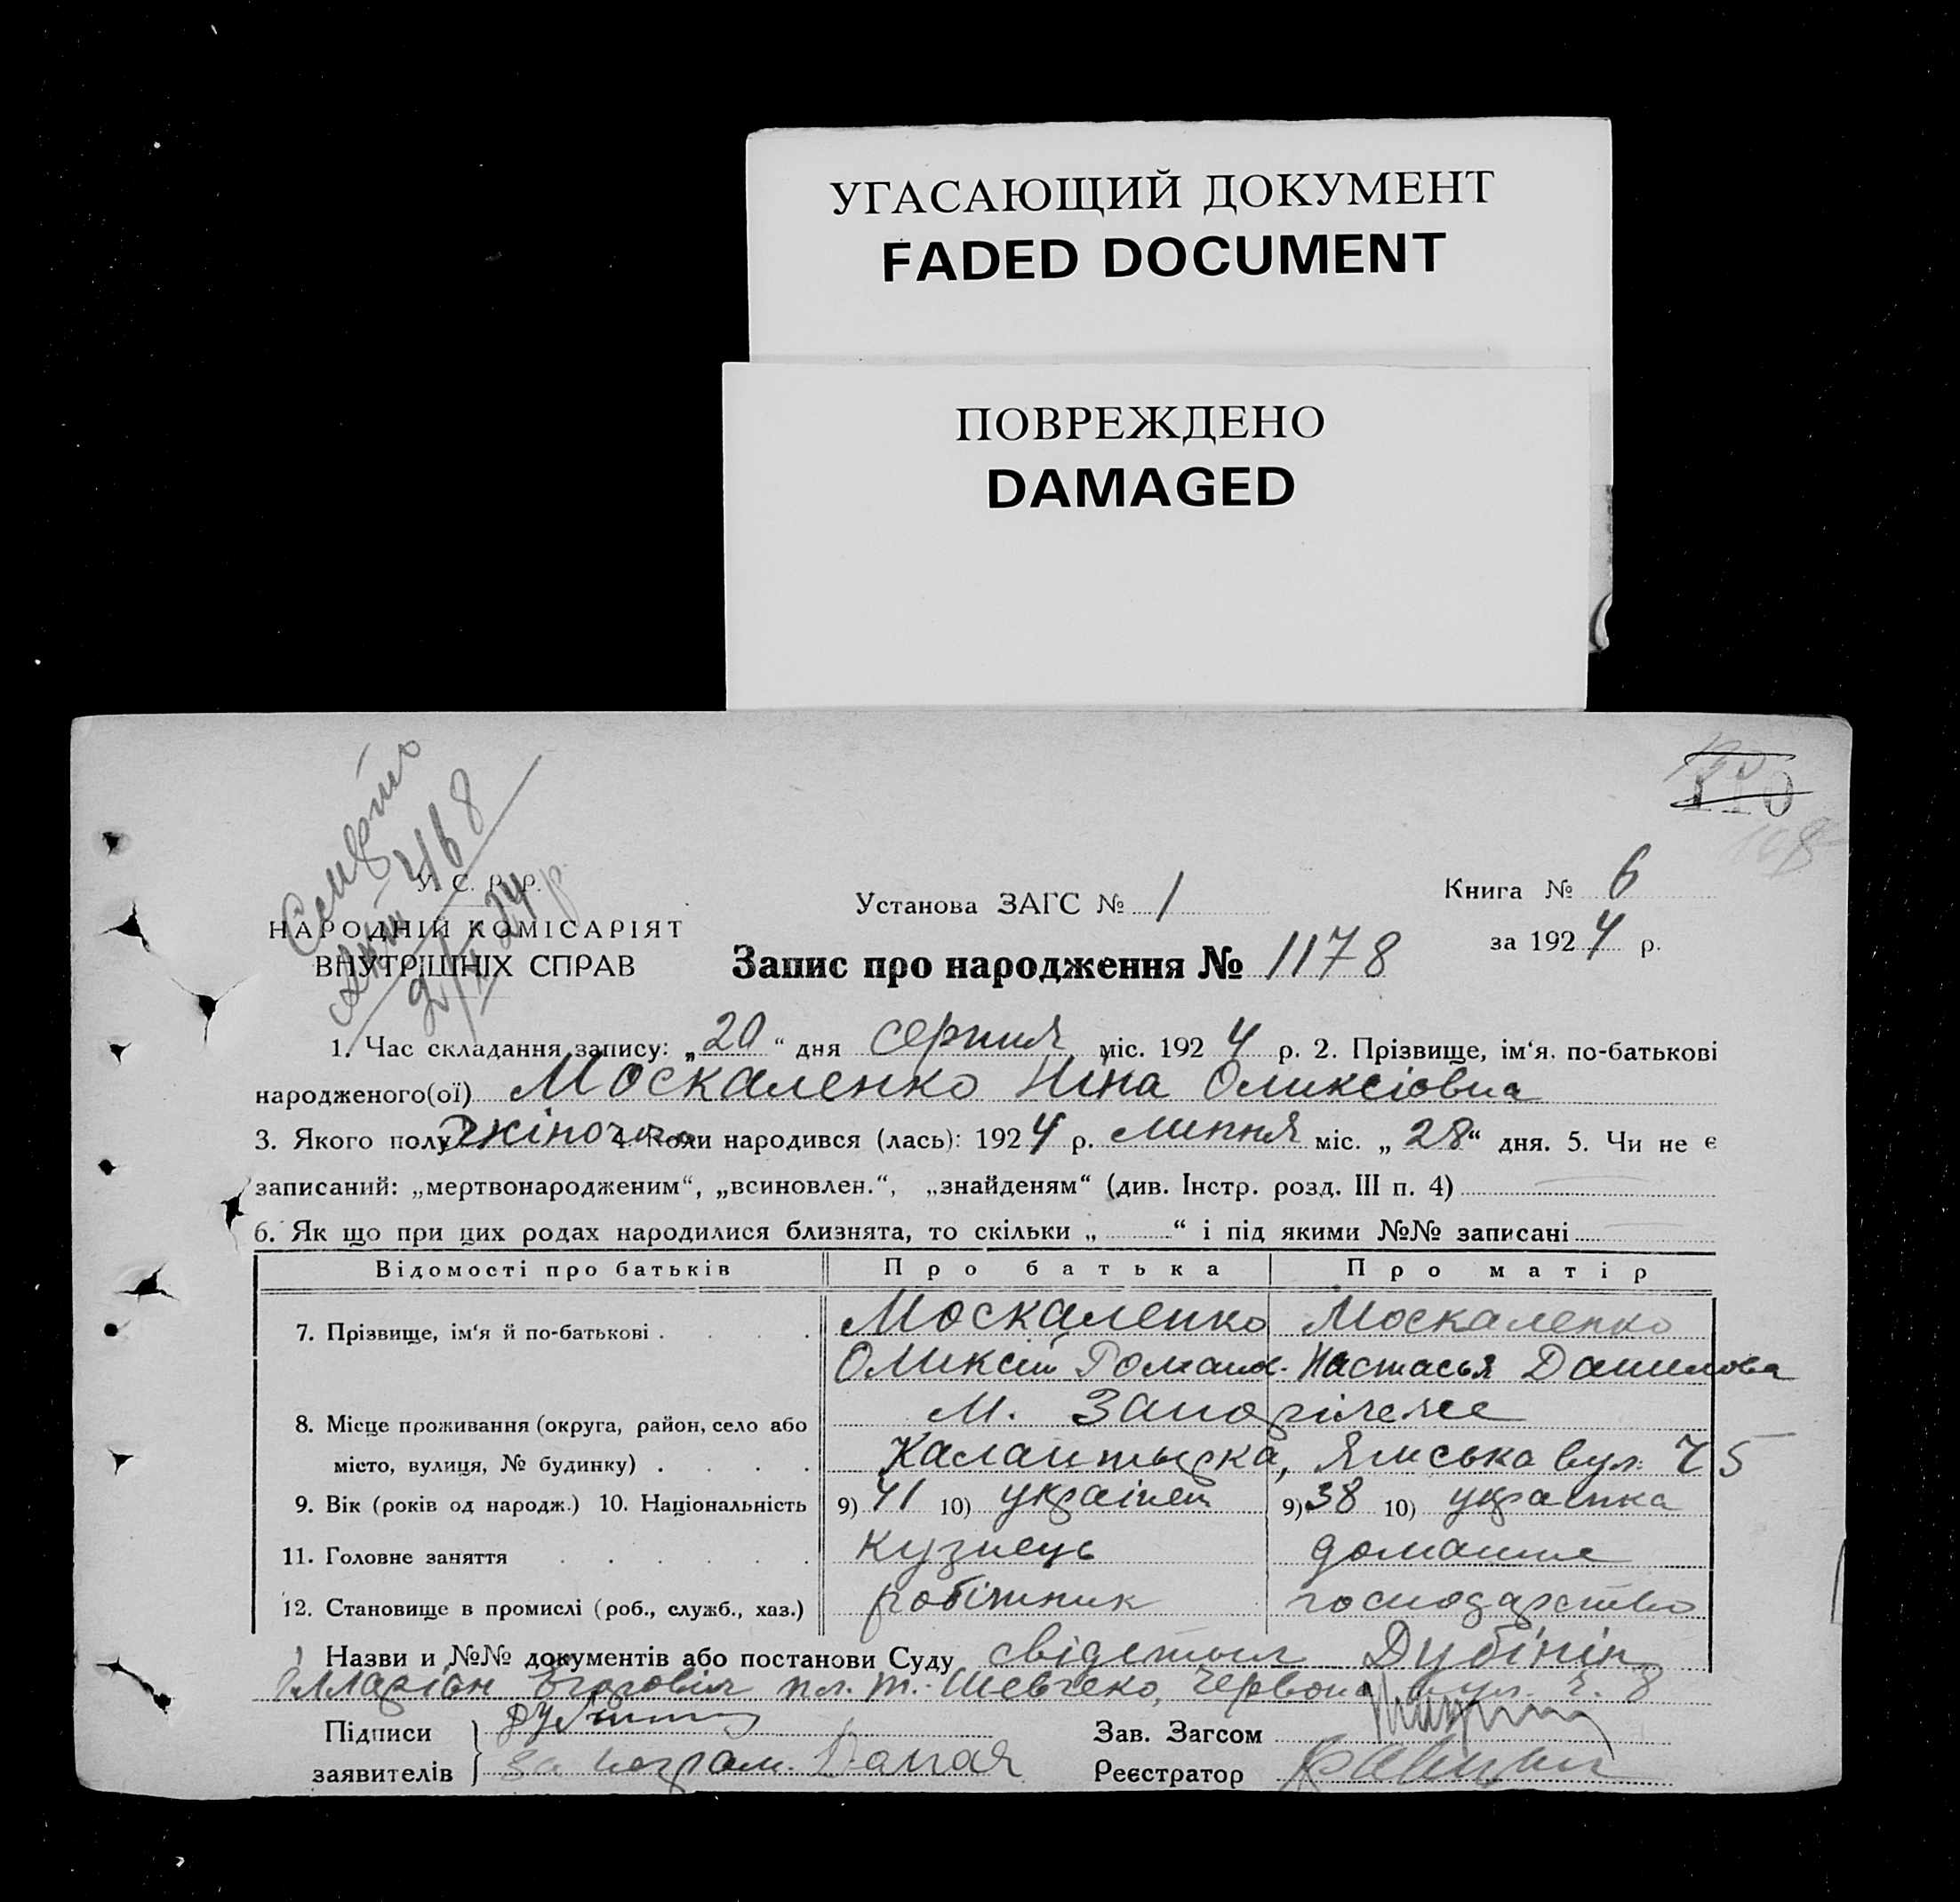 УГАСАЮЩИЙ ДОКУМЕНТ
FADED DOCUMENT
ПОВРЕЖДЕНО
DAMAGED
110
У. С. Р. Р.
НАРОДНІЙ КОМІСАРІЯТ
ВНУТРІШНІХ СПРАВ
Установа ЗАГС № 1
Книга № 6
за 1924 р.
Запис про народження № 1178
1. Час складання запису: „20“ дня серпня міс. 1924 р. 2. Прізвище, ім‘я. по-батькові
народженого(ої) Москаленко Ніна Оликсіовна
3. Якого полу жіноча 4. Коли народився (лась): 1924 р. липня міс. „28“ дня. 5. Чи не є
записаний: „мертвонародженим“, „всиновлен.“, „знайденям“ (див. Інстр. розд. III п. 4)
6. Як що при цих родах народилися близнята, то скільки „ “ і під якими №№ записані
Відомості про батьків Про батька Про матір
7. Прізвище, ім‘я й по-батькові . . . . Москаленко Москаленко
Оликсій Роман. Настасья Данилова
8. Місце проживання (округа, район, село або М. Запоріжже
місто, вулиця, № будинку) . . . . Ямська вул. 75
9. Вік (років од народж.) 10. Національність 9) 41 10) українец 9) 38 10) украінка
11. Головне заняття . . . . . . кузнець домашне
12. Становище в промислі (роб., служб., хаз.) робітник господарство
Назви и №№ документів або постанови Суду свідетыл Дубінін
пл. Т. Шевчеко, Червона вул. ч. 8
Підписи
Зав. Загсом
заявителів за неграм.
Реєстратор